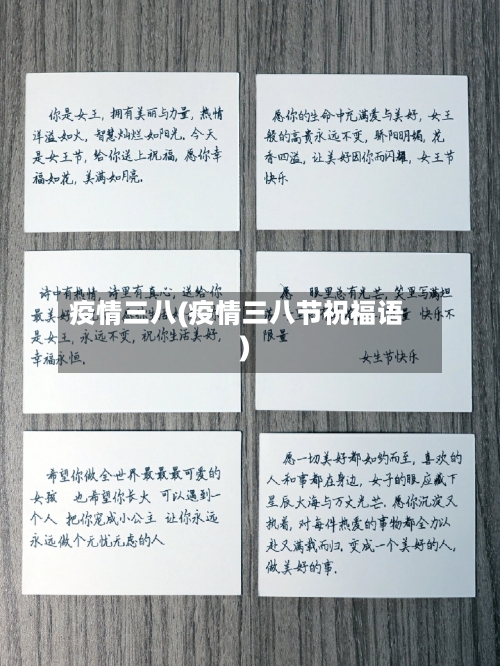 你是女王，拥有美丽与力量，热情
洋溢如火，智慧灿烂如阳光。今天
是女王节，给你送上祝福，愿你幸
福如花，美满如月亮。
愿你的生命中充满爱与美好，女王
般的高贵永远不变，骄阳明媚，花
香四溢，让美好因你而闪耀，女王节
快乐
诗中有热情 诗里有真心，送给你
最美好
是女王，永远不变，祝你生活美好，
幸福永恒。
愿 眼里总有光芒，笑里写满坦
量 快乐不
限量
女生节快乐
疫情三八(疫情三八节祝福语
)
希望你做全世界最最最可爱的
女孩 也希望你长大 可以遇到一
个人 把你宠成小公主 让你永远
永远做个无忧无虑的人
愿一切美好都如约而至，喜欢的
人和事都在身边，女子的眼应藏下
星辰大海与万丈光芒。愿你沉淀又
执着，对每件热爱的事物都全力以
赴又满载而归。变成一个美好的人，
做美好的事。